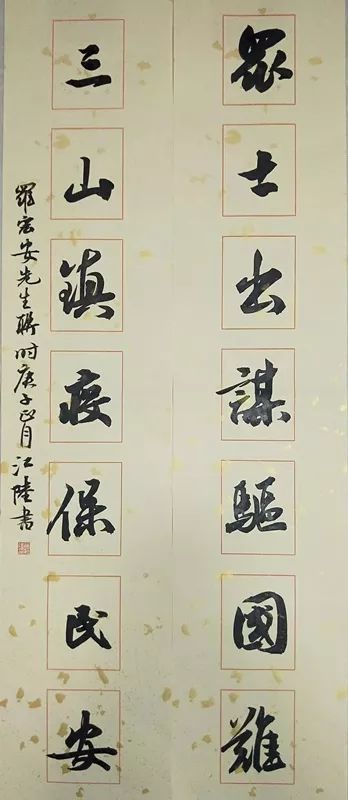 眾士出謀驅國難
三山鎮疫保民安
羅宏安先生聯時庚子正月江陸書